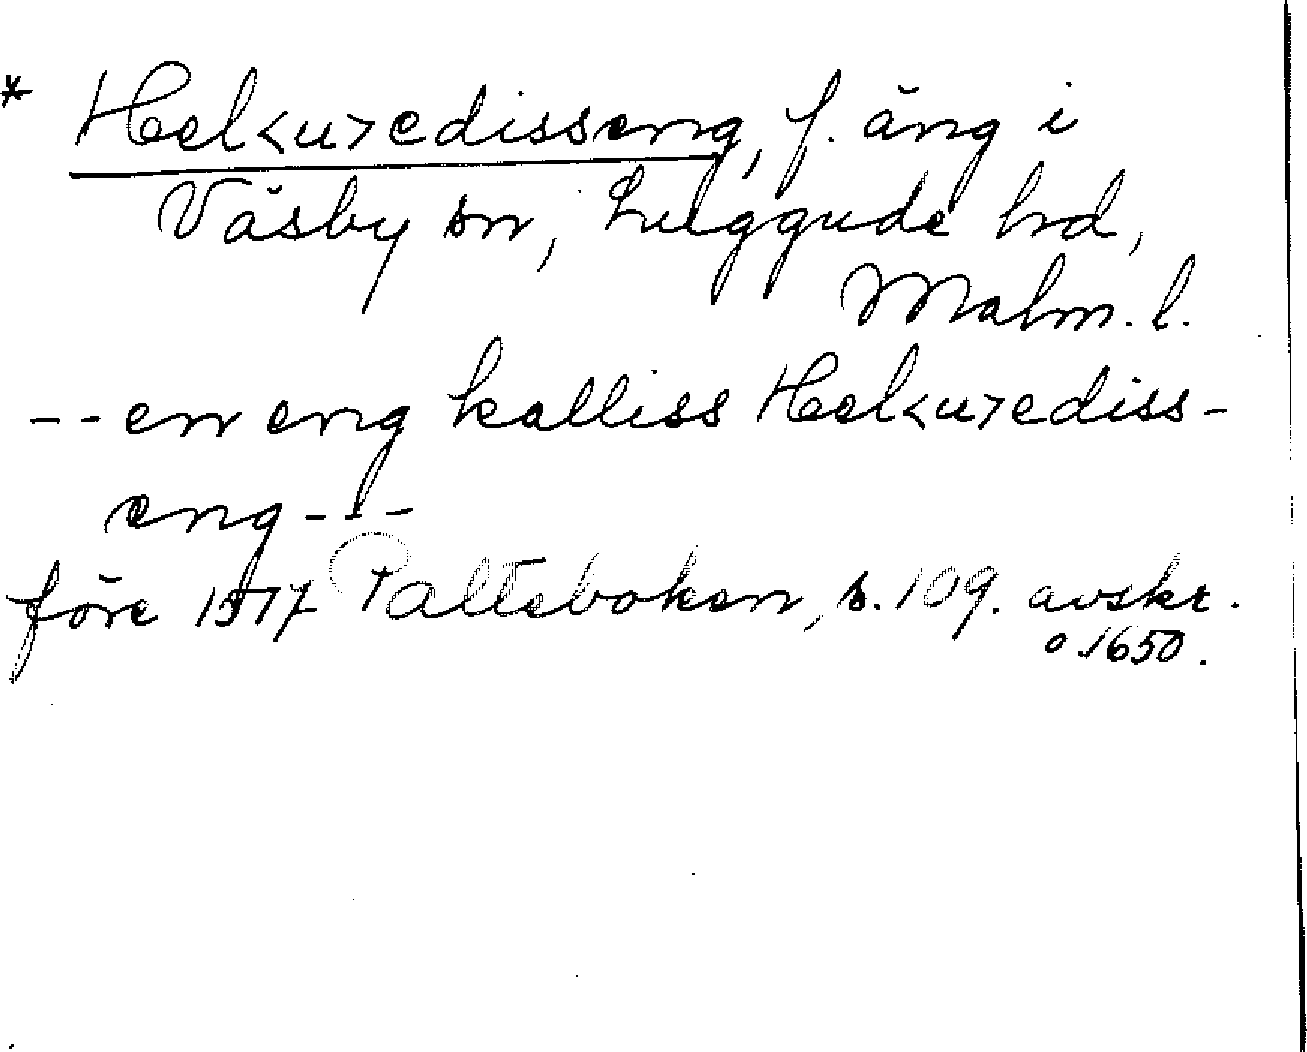 * Helk<u>redisseng, f. äng i
Väsby sn, Luggude hd,
Malm. l.
-- en eng kalliss Helk<u>rediss-
eng ---
före 1517 Palteboken, s. 109. avskr.
o 1650.